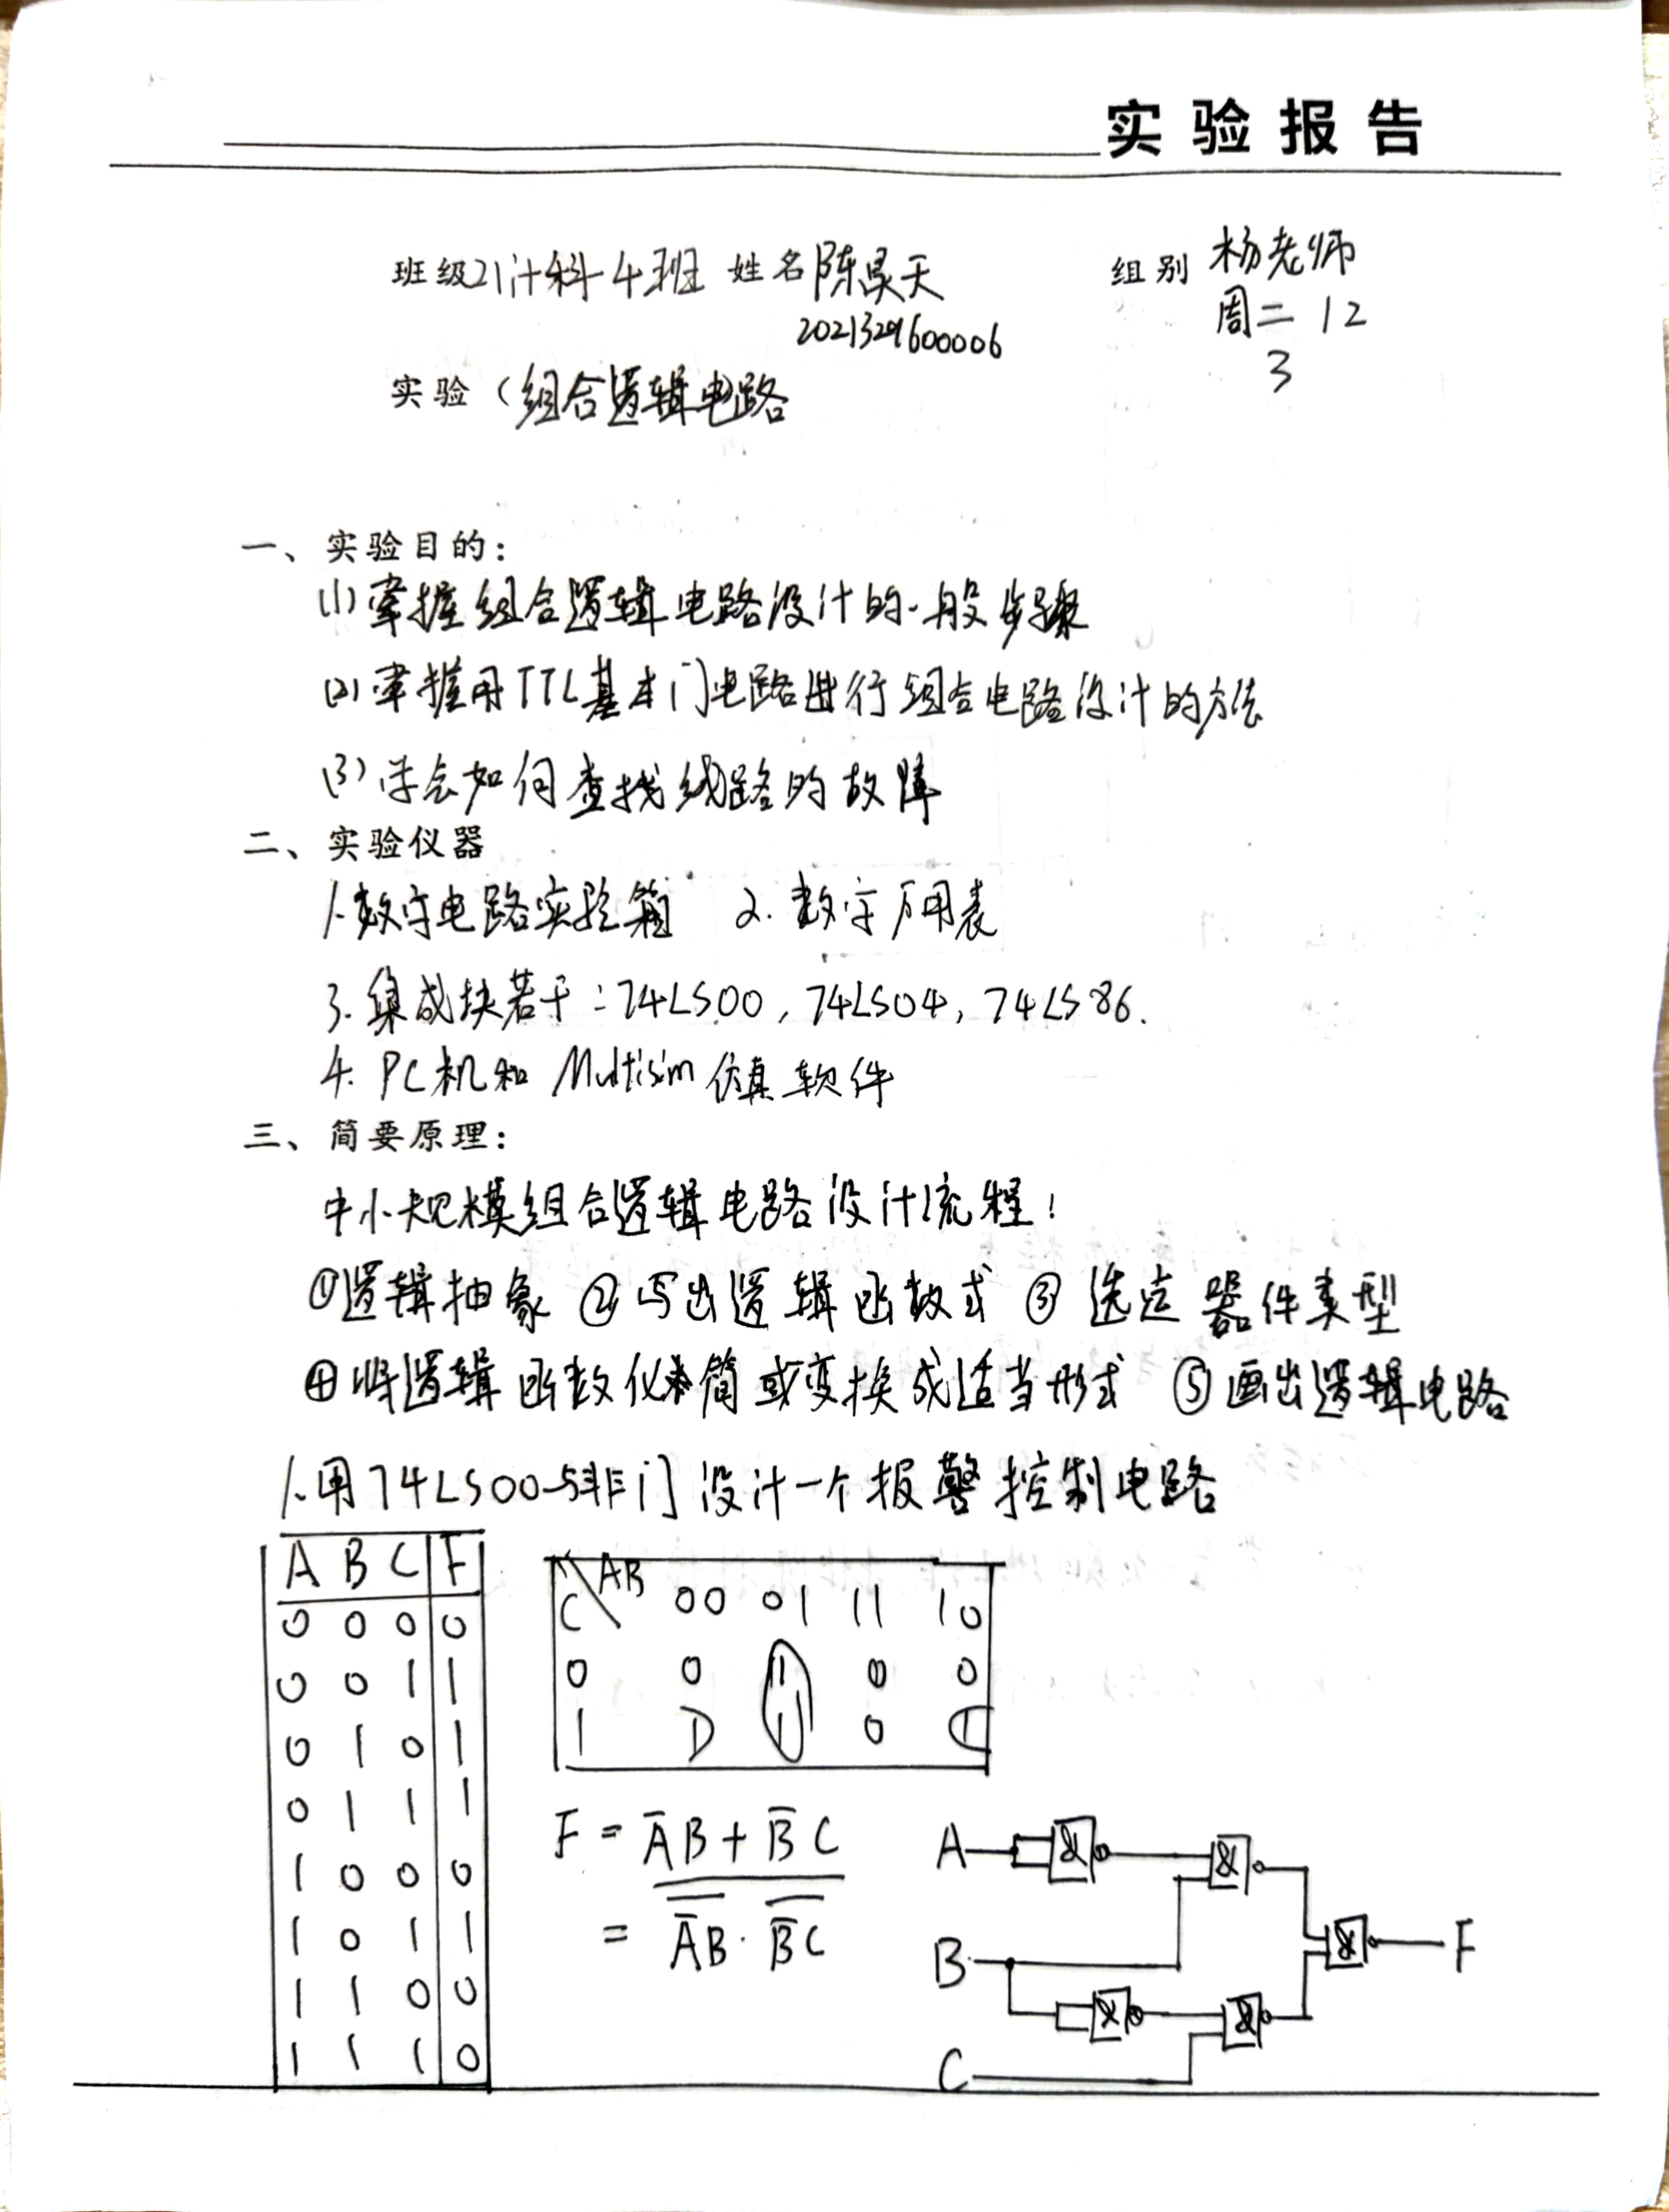 实验报告
班级21计科4班 姓名陈昊天 组别 杨老师
2021329600006 周二 12
3
实验(组合逻辑电路
一、实验目的:
(1)掌握组合逻辑电路设计的一般步骤
(2)掌握用TTL基本门电路进行组合电路设计的方法
(3)学会如何查找线路的故障
二、实验仪器
1.数字电路实验箱 2.数字万用表
3.集成块若干:74LS00,74LS04,74LS86.
4.PC机和Multisim仿真软件
三、简要原理:
中小规模组合逻辑电路设计流程:
①逻辑抽象 ②写出逻辑函数式 ③选定器件类型
④将逻辑函数化简或变换成适当形式 ⑤画出逻辑电路
1.用74LS00与非门设计一个报警控制电路
A B C F
0 0 0 0
0 0 1 1
0 1 0 1
0 1 1 1
1 0 0 0
1 0 1 1
1 1 0 0
1 1 1 0
C\AB 00 01 11 10
0 0 1 0 0
1 1 1 0 1
F = A̅B + B̅C
= \overline{\overline{A̅B}·\overline{B̅C}}
A & &
B & F
& &
C